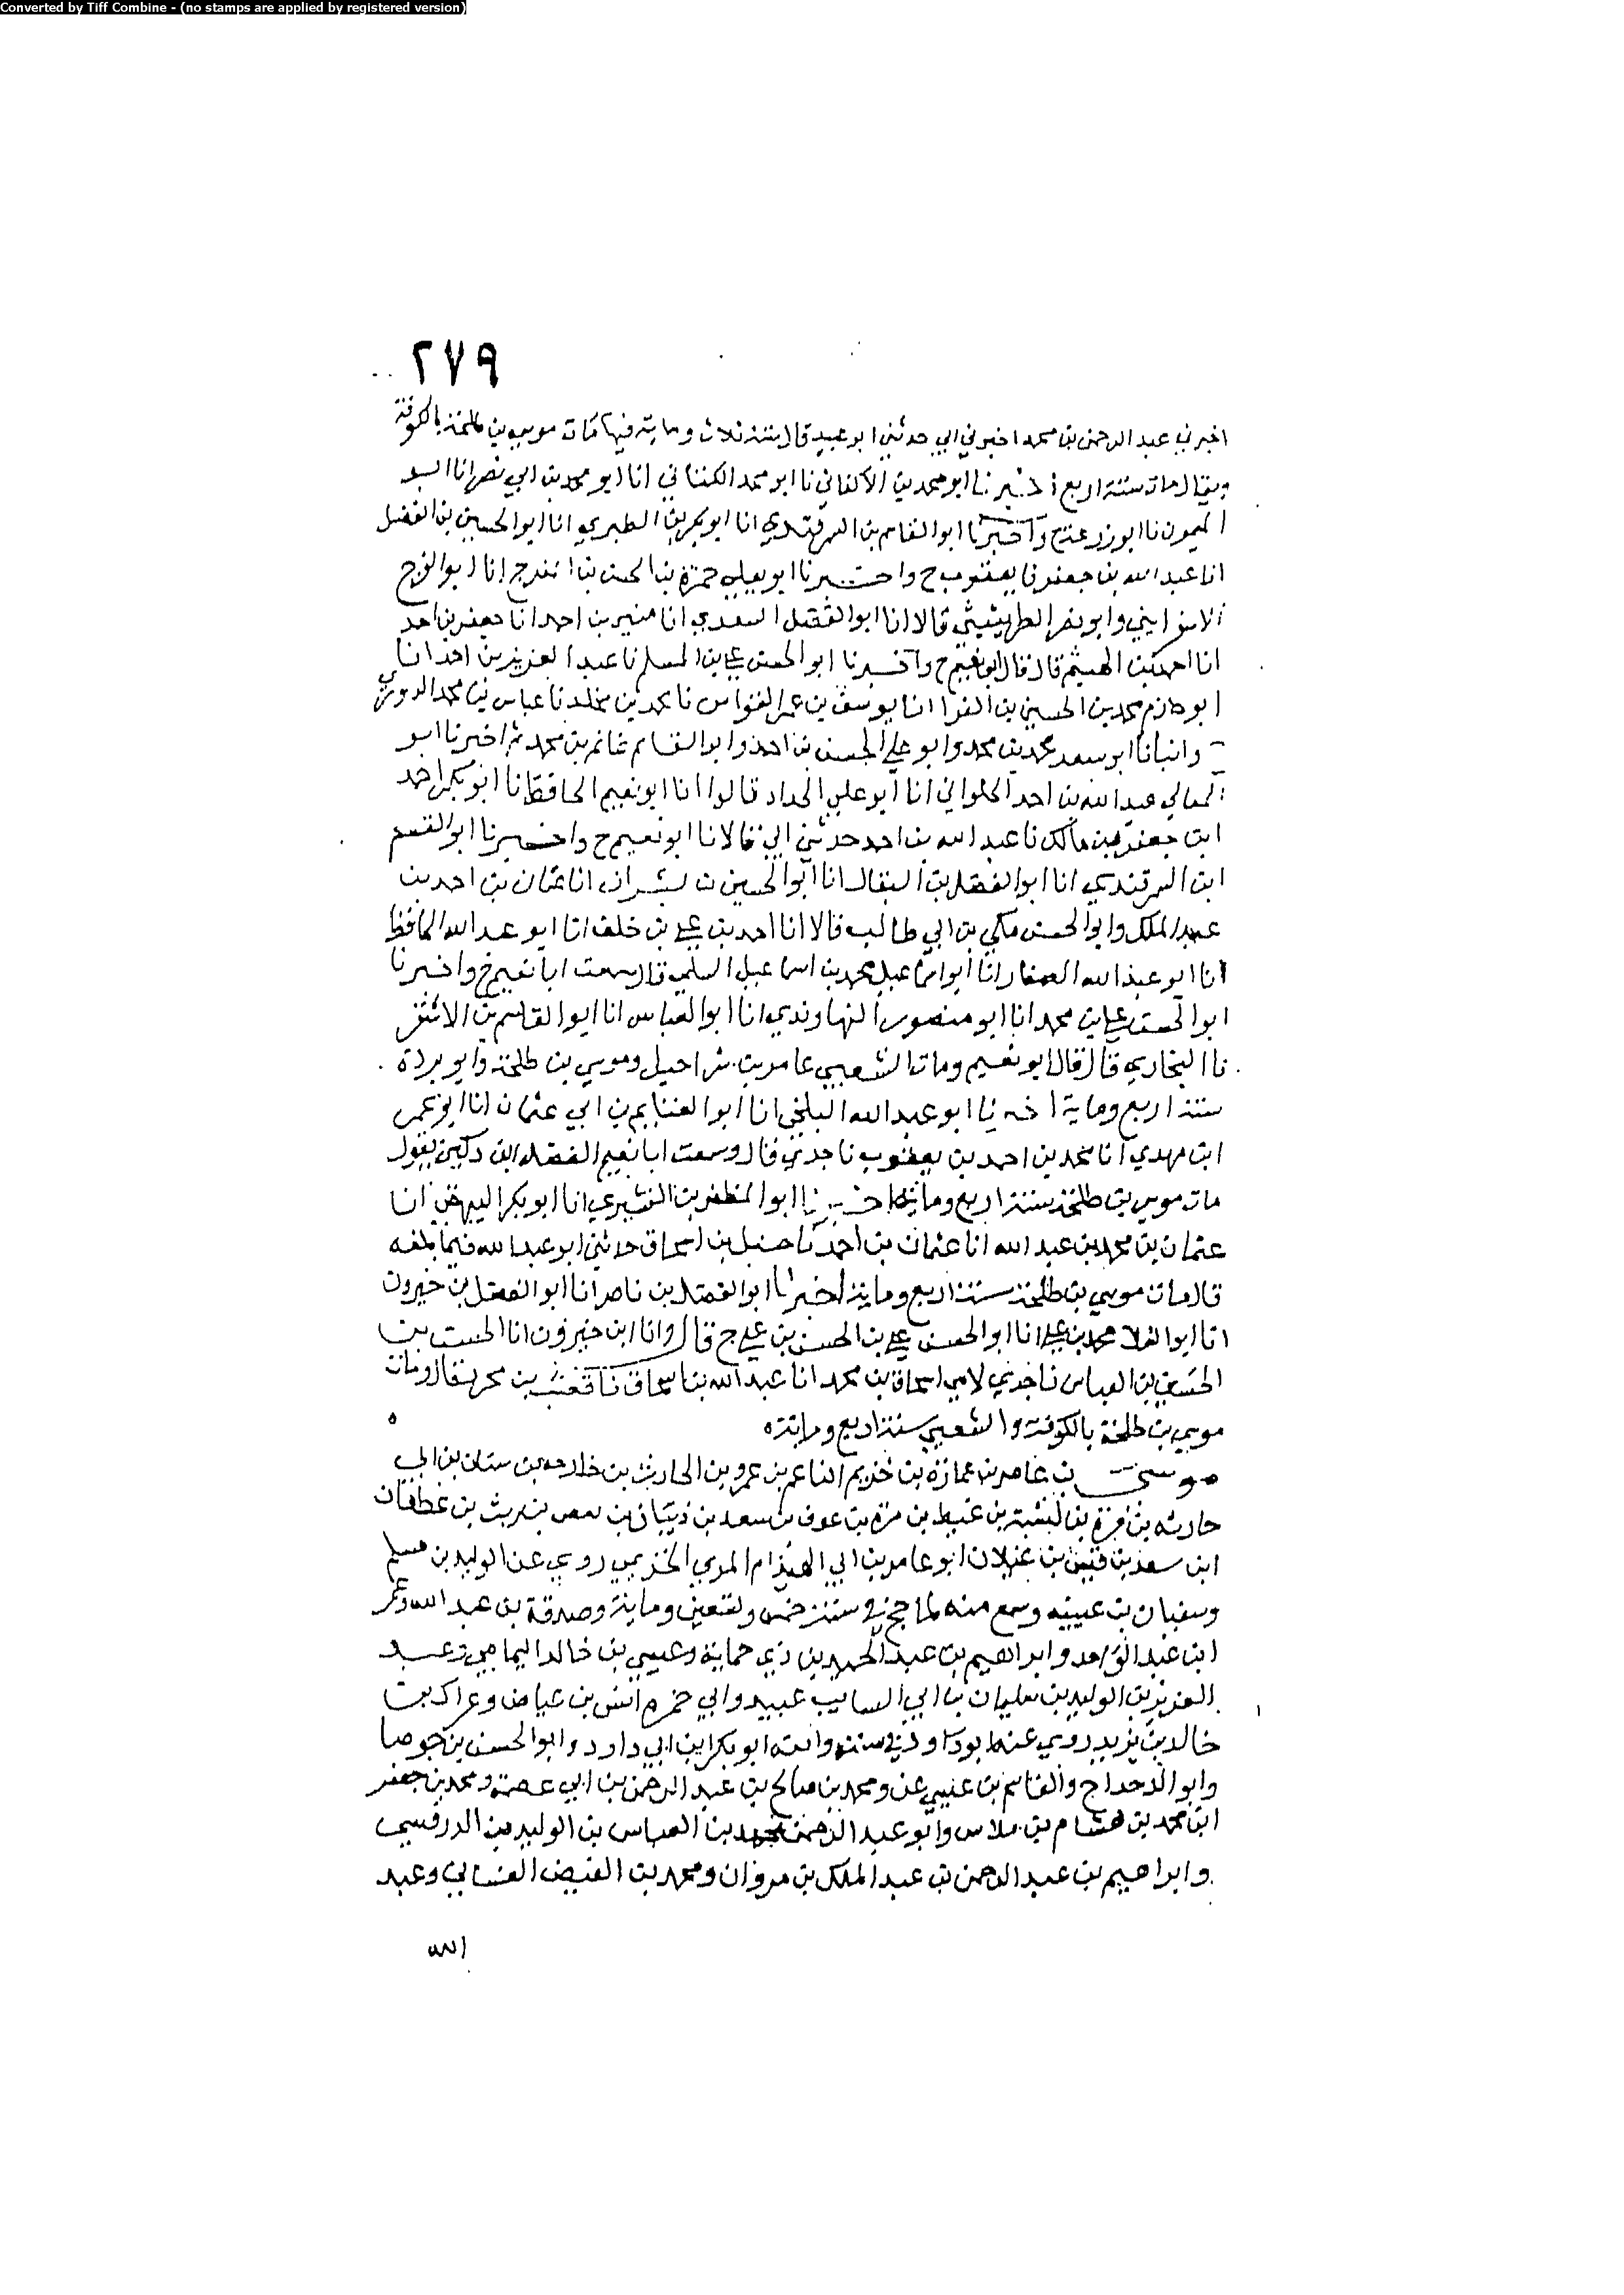 Converted by Tiff Combine - (no stamps are applied by registered version)
٢٧٩
اخبرني عبد الرحمن بن محمد اخبرني ابي حدثني ابو عبيد قال سنة ثلاث وماية فيها مات موسى بن طلحة بالكوفة
ويقال مات سنة اربع اخبرنا ابو محمد بن الاكفاني نا ابو محمد الكتاني انا ابو محمد بن ابي نصر انا ابو
الميمون نا ابو زرعة ح واخبرنا ابو القاسم بن السمرقندي انا ابو بكر بن الطبري انا ابو الحسين بن الفضل
انا عبد الله بن جعفر نا يعقوب ح واخبرنا ابو يعلى حمزة بن الحسن بن المفرج انا ابو الفرج
الاسفرايني وابو نصر الطريثيثي قالا انا ابو الفضل السعدي انا منير بن احمد انا جعفر بن احمد
انا احمد بن الهيثم قال قال ابو نعيم ح واخبرنا ابو الحسن علي بن المسلم نا عبد العزيز بن احمد انا
ابو حازم محمد بن الحسين بن الفرا انا يوسف بن عمر القواس نا محمد بن مخلد نا عباس بن محمد الدوري
ح وانبانا ابو سعد محمد بن محمد وابو علي الحسن بن احمد وابو القاسم غانم بن محمد ثم اخبرنا ابو
المعالي عبد الله بن احمد الحلواني انا ابو علي الحداد قالوا انا ابو نعيم الحافظ نا ابو بكر احمد
ابن جعفر بن مالك نا عبد الله بن احمد حدثني ابي قالا نا ابو نعيم ح واخبرنا ابو القسم
ابن السمرقندي انا ابو الفضل بن البقال انا ابو الحسين بن بشران انا عثمان بن احمد بن
عبد الملك وابو الحسن مكي بن ابي طالب قالا انا احمد بن علي بن خلف انا ابو عبد الله الحافظ
انا ابو عبد الله الصفار انا ابو اسماعيل محمد بن اسماعيل السلمي قال سمعت ابا نعيم ح واخبرنا
ابو الحسن علي بن محمد انا ابو منصور النهاوندي انا ابو العباس انا ابو القاسم بن الاشقر
نا البخاري قال قال ابو نعيم ومات الشعبي عامر بن شراحيل وموسى بن طلحة وابو بردة
سنة اربع وماية اخبرنا ابو عبد الله البلخي انا ابو الغنايم بن ابي عثمان انا ابو عمر
ابن مهدي انا محمد بن احمد بن يعقوب نا جدي قال وسمعت ابا نعيم الفضل بن دكين يقول
مات موسى بن طلحة سنة اربع وماية اخبرنا ابو المظفر بن القشيري انا ابو بكر البيهقي انا
عثمان بن محمد بن عبد الله انا عثمان بن احمد نا حنبل بن اسحاق حدثني ابو عبد الله فيما بلغه
قال مات موسى بن طلحة سنة اربع وماية اخبرنا ابو الفضل بن ناصر انا ابو الفضل بن خيرون
انا ابو العلا محمد بن علي انا ابو الحسن علي بن الحسن بن علي ح قال وانا ابن خيرون انا الحسن بن
الحسين بن العباس نا جدي لامي اسحاق بن محمد انا عبد الله بن اسحاق نا قعنب بن محرر قال ومات
موسى بن طلحة بالكوفة والشعبي سنة اربع وماية ه
موسى بن عامر بن عمارة بن خريم الناعم بن عمرو بن الحارث بن خارجه بن سنان بن ابي
حارثه بن مرة بن نشبة بن غيظ بن مرة بن عوف بن سعد بن ذبيان بن بغيض بن ريث بن غطفان
ابن سعد بن قيس بن عيلان ابو عامر بن ابي الهيذام المري الخريمي روى عن الوليد بن مسلم
وسفيان بن عيينه وسمع منه لما حج في سنة خمس وتسعين وماية وصدقة بن عبد الله وعمر
ابن عبد الواحد وابراهيم بن عبد الحميد بن ذي حماية وعيسى بن خالد اليمامي وعبد
العزيز بن الوليد بن سليمان بن ابي السايب عبيد وابي ضمره انس بن عياض وعراك بن
خالد بن يزيد روى عنه ابو داود في سننه وابنه ابو بكر ابن ابي داود وابو الحسن بن جوصا
وابو الدحداح والقاسم بن عيسى ومحمد بن صالح بن عبد الرحمن بن ابي عصمة ومحمد بن جعفر
ابن محمد بن هشام بن ملاس وابو عبد الرحمن محمد بن العباس بن الوليد بن الدرفس
وابراهيم بن عبد الرحمن بن عبد الملك بن مروان ومحمد بن الفيض الغساني وعبد
الله